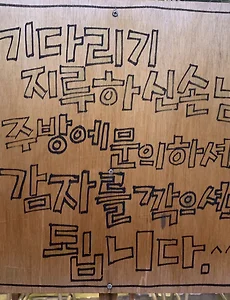 기다리기
지루하신손님
주방에문의하셔
감자를 깎으셔
됩니다.^^